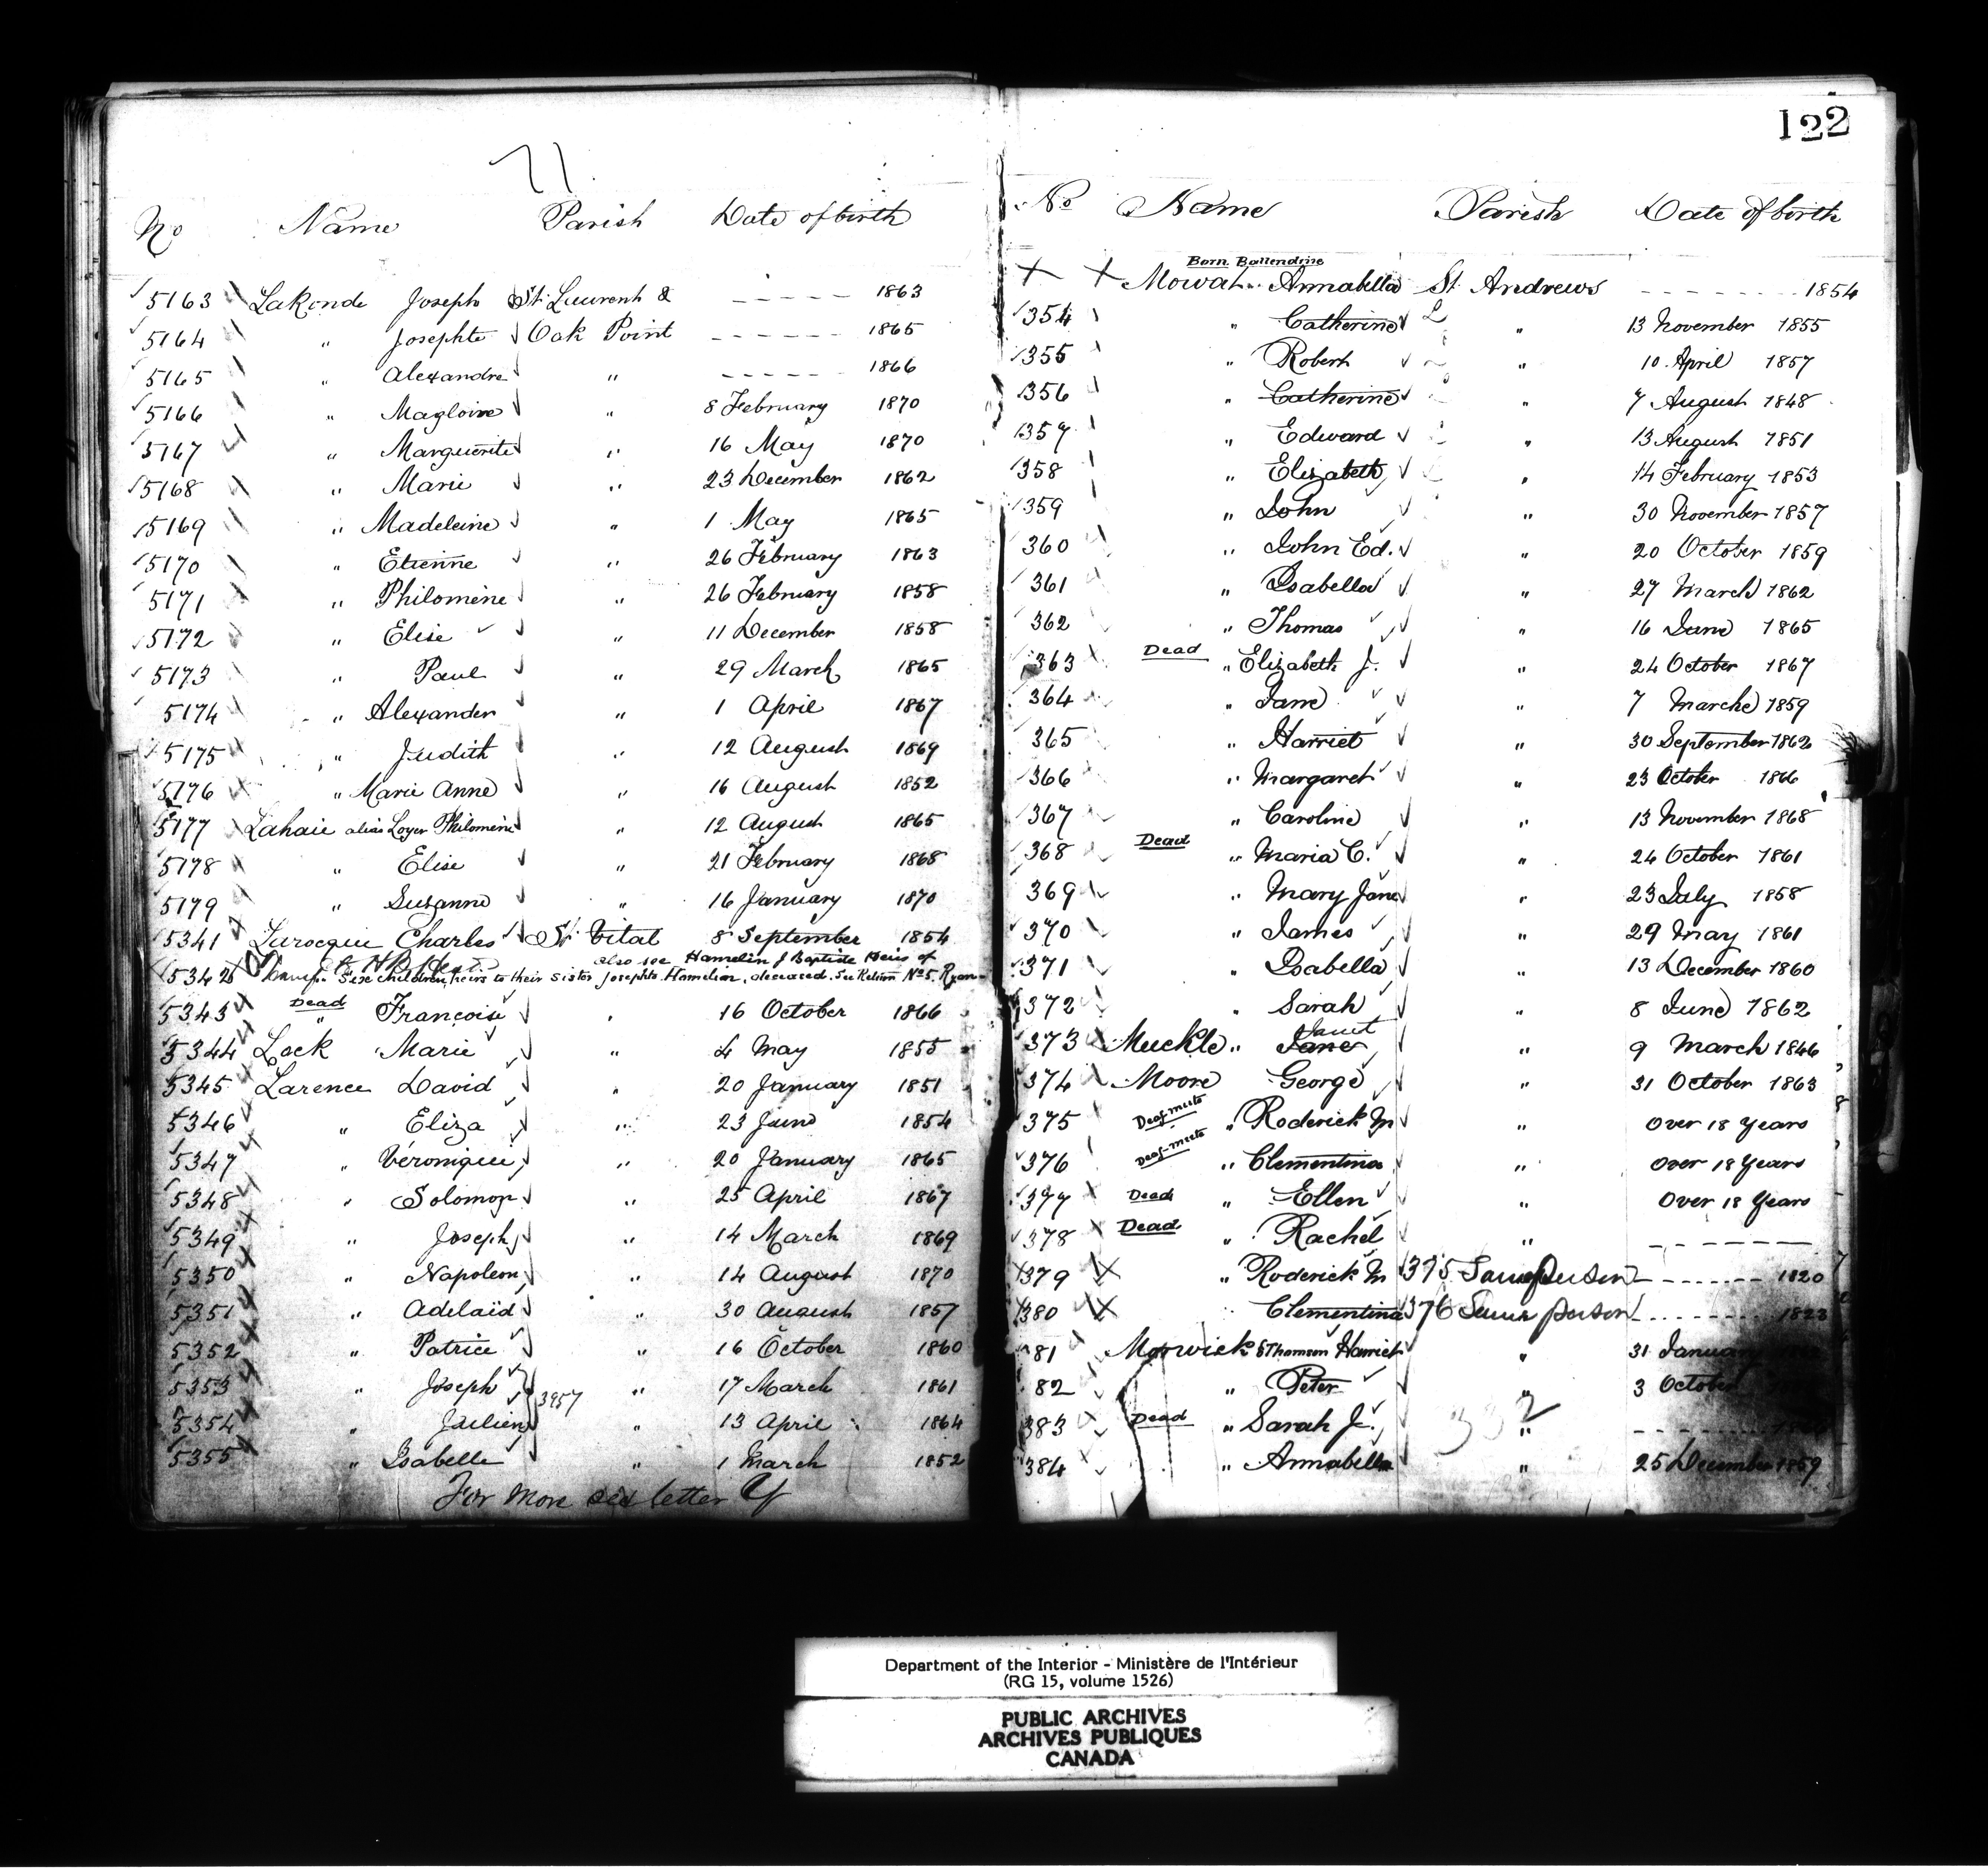 122
71
No Name Parish Date of birth
5163 Lakonde Joseph St. Laurent & ----- 1863
5164 " Josephte Oak Point ------ 1865
5165 " Alexandre " ----- 1866
5166 " Magloire " 8 February 1870
5167 " Marguerite " 16 May 1870
5168 " Marie " 23 December 1862
5169 " Madeleine " 1 May 1865
5170 " Etienne " 26 February 1863
5171 " Philomène " 26 February 1858
5172 " Elise " 11 December 1858
5173 " Paul " 29 March 1865
5174 " Alexander " 1 April 1867
5175 " Judith " 12 August 1869
5176 " Marie Anne " 16 August 1852
5177 Lahaie alias Loyer Philomène " 12 August 1865
5178 " Elise " 21 February 1868
5179 " Suzanne " 16 January 1870
5341 Larocque Charles St Vital 8 September 1854
also see Hamelin J Baptiste Heirs of
5342 Six children, heirs to their sister Josephte Hamelin, deceased. See Return No 5. Ryan
5343 Dead " Françoise " 16 October 1866
5344 Lock Marie " 4 May 1855
5345 Larence David " 20 January 1851
5346 " Eliza " 23 June 1854
5347 " Véronique " 20 January 1865
5348 " Solomon " 25 April 1867
5349 " Joseph " 14 March 1869
5350 " Napoleon " 14 August 1870
5351 " Adelaïd " 30 August 1857
5352 " Patrice " 16 October 1860
5353 " Joseph " 17 March 1861
3957
5354 " Julien " 13 April 1864
5355 " Isabelle " 1 March 1852
For more see letter Y
No Name Parish Date of birth
Born Ballendine
Mowat " Annabella St Andrews -------- 1854
354 " Catherine " 13 November 1855
355 " Robert " 10 April 1857
356 " Catherine " 7 August 1848
357 " Edward " 13 August 1851
358 " Elizabeth " 14 February 1853
359 " John " 30 November 1857
360 " John Ed. " 20 October 1859
361 " Isabella " 27 March 1862
362 " Thomas " 16 June 1865
363 Dead " Elizabeth J. " 24 October 1867
364 " Jane " 7 Marche 1859
365 " Harriet " 30 September 1862
366 " Margaret " 23 October 1866
367 " Caroline " 13 November 1868
368 Dead " Maria C. " 24 October 1861
369 " Mary Jane " 23 July 1858
370 " James " 29 May 1861
371 " Isabella " 13 December 1860
372 " Sarah " 8 June 1862
Janet
373 Muckle " Jane " 9 March 1846
374 Moore George " 31 October 1863
375 Deaf-mute " Roderick M " Over 18 Years
376 Deaf-mute " Clementina " Over 18 Years
377 Dead " Ellen " Over 18 Years
378 Dead " Rachel " -------
379 " Roderick M 375 Same person ------- 1820
380 Clementina 376 Same person -------- 1823
381 Morwick Thomson Harriet " 31 January
82 " Peter " 3 October
383 Dead " Sarah J. " -------
382
384 " Annabella " 25 December 1859
Department of the Interior - Ministère de l'Intérieur
(RG 15, volume 1526)
PUBLIC ARCHIVES
ARCHIVES PUBLIQUES
CANADA